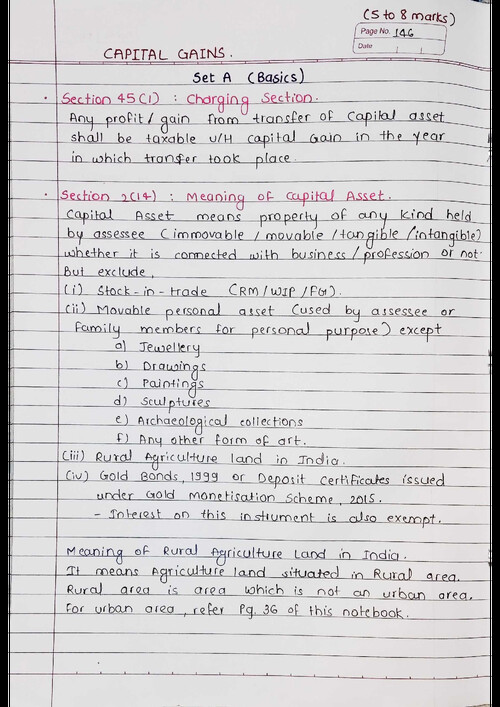 (5 to 8 marks)
Page No. 146
Date
CAPITAL GAINS.
Set A (Basics)
• Section 45(1) : Charging Section.
Any profit / gain from transfer of Capital asset
shall be taxable U/H Capital Gain in the year
in which transfer took place.
• Section 2(14) : Meaning of Capital Asset.
Capital Asset means property of any kind held
by assessee (immovable / movable / tangible / intangible)
whether it is connected with business / profession or not.
But exclude,
(i) Stock-in-trade (RM / WIP / FG).
(ii) Movable personal asset (used by assessee or
family members for personal purpose) except
a) Jewellery
b) Drawings
c) Paintings
d) Sculptures
e) Archaeological collections
f) Any other form of art.
(iii) Rural Agriculture land in India.
(iv) Gold Bonds, 1999 or Deposit Certificates issued
under Gold Monetisation Scheme, 2015.
- Interest on this instrument is also exempt.
Meaning of Rural Agriculture Land in India.
It means Agriculture land situated in Rural area.
Rural area is area which is not an urban area.
For urban area, refer Pg. 36 of this notebook.